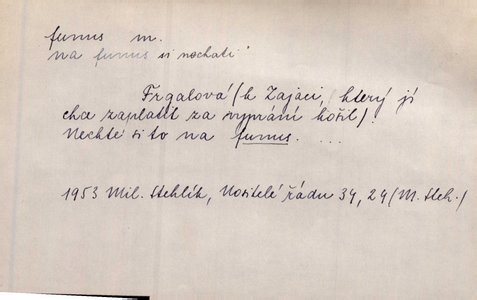 funus m.
na funus si nechati
Frgalová (k Zajáci, který jí
chce zaplatit za vyprání košil)!
Nechte si to na funus. ...
1953 Mil. Stehlík, Nositelé řádu 34, 24 (M. Steh.)